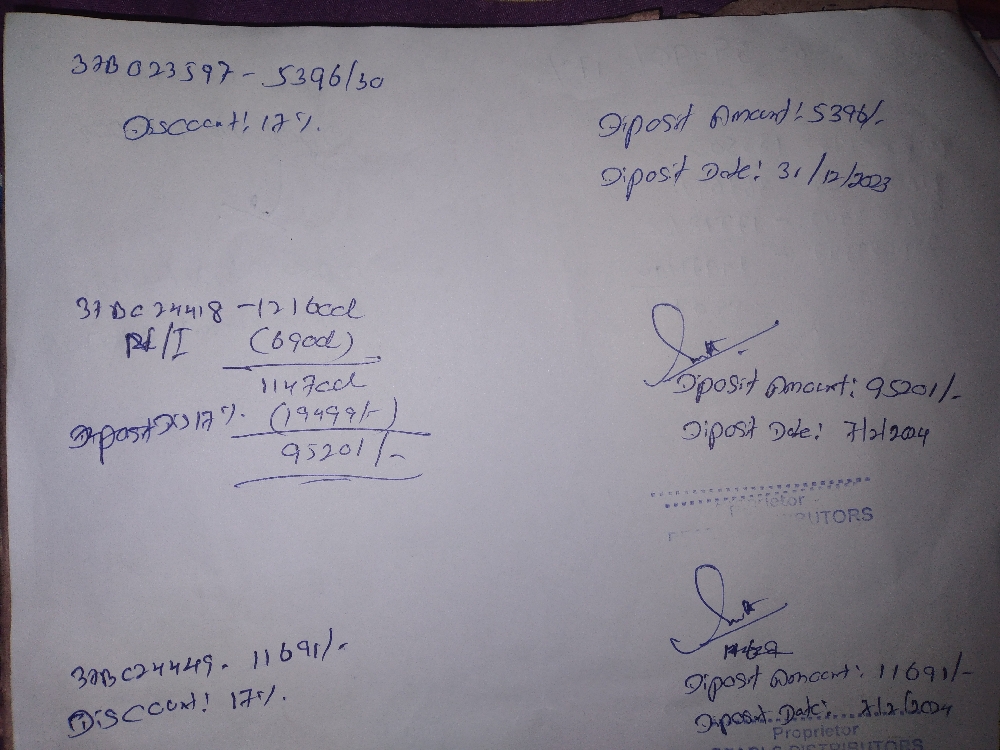 37B023597 - 5396/30
Discount! 17%.
Diposit Amount! 5396/-
Diposit Date! 31/12/2023
37BC24418 - 121600
(6900)
114700
Diposit Dis 17%. (19499/-)
95201/-
Diposit Amount: 95201/-
Diposit Date! 7/2/2024
Proprietor
37BC24449. 11691/-
Discount! 17%.
Diposit Amount: 11691/-
Diposit Date! 7/2/2024
Proprietor
DISTRIBUTORS